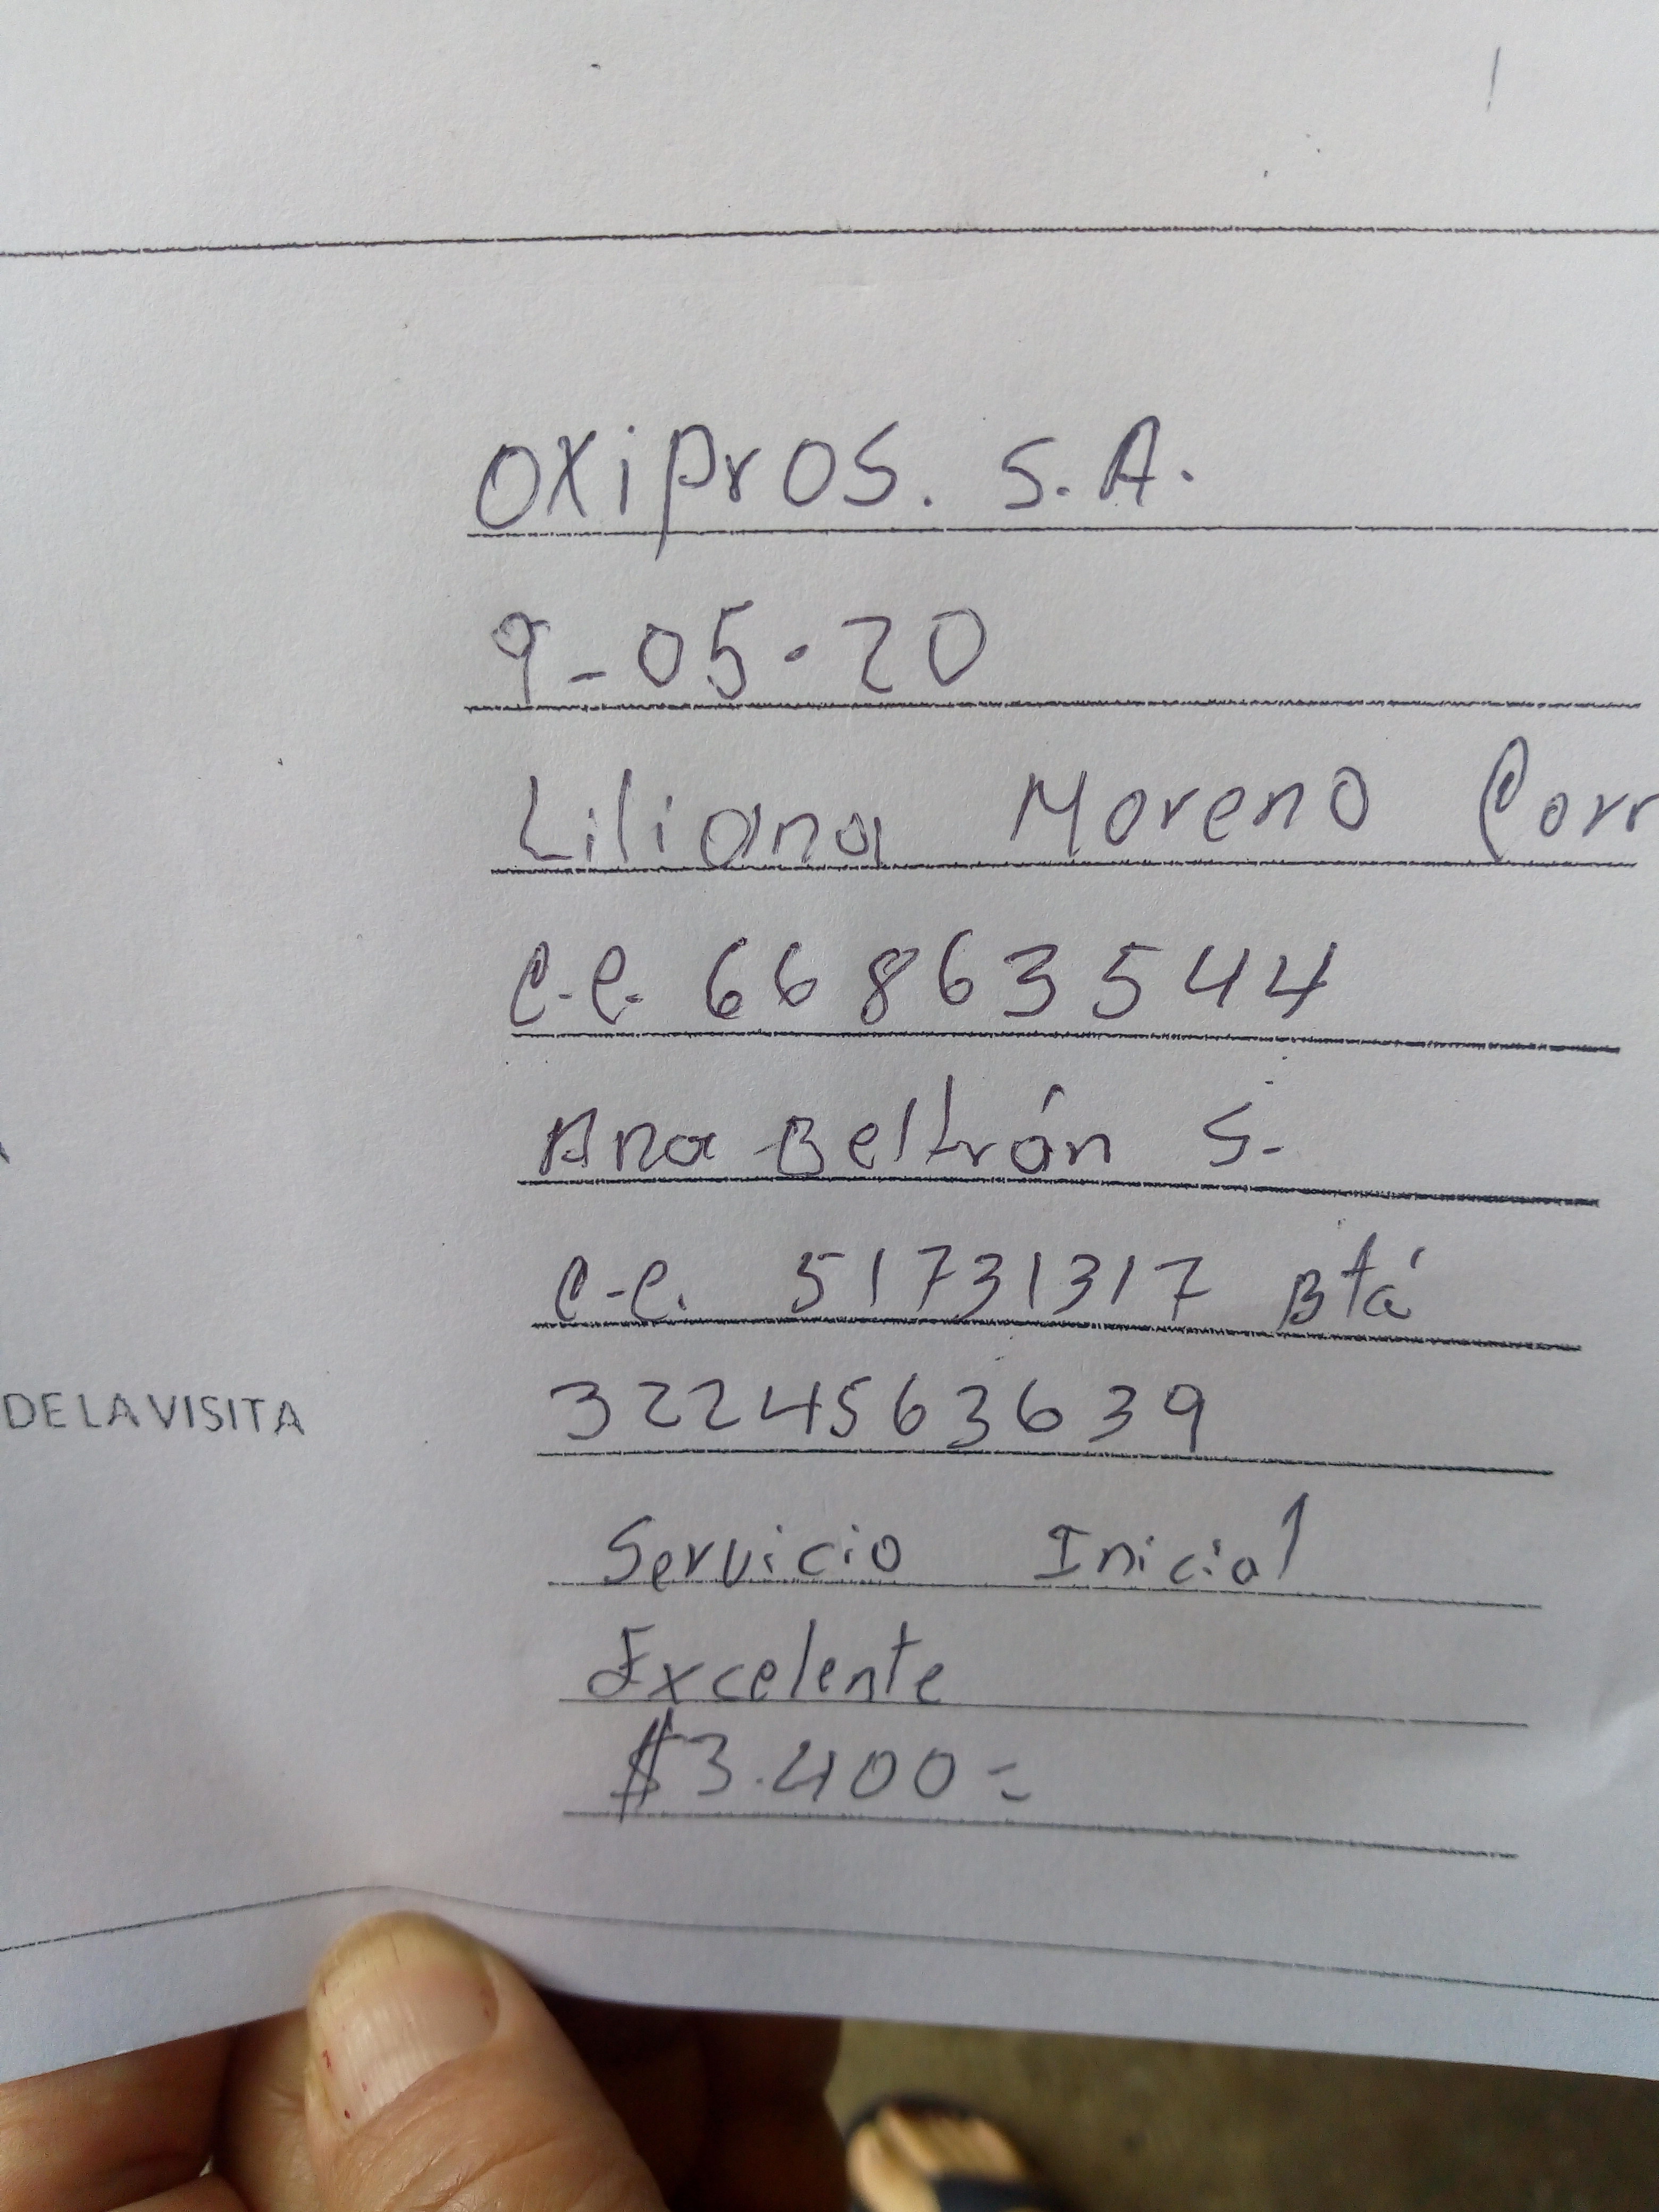 OXiPrOS. S.A.
9-05-20
Liliana Moreno Corr
C.C. 66863544
Ana Beltrán S.
C.C. 51731317 Btá
3224563639
DE LA VISITA
Servicio Inicial
Excelente
$3.400=